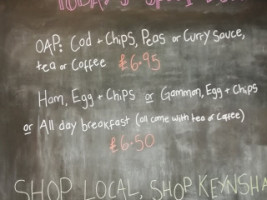 TODAY'S
OAP: Cod + Chips, Peas or Curry Sauce,
tea or Coffee £6.95
Ham, Egg + Chips or Gammon, Egg + Chips
or All day breakfast (all come with tea or Coffee)
£6.50
SHOP LOCAL, SHOP KEYNSHA